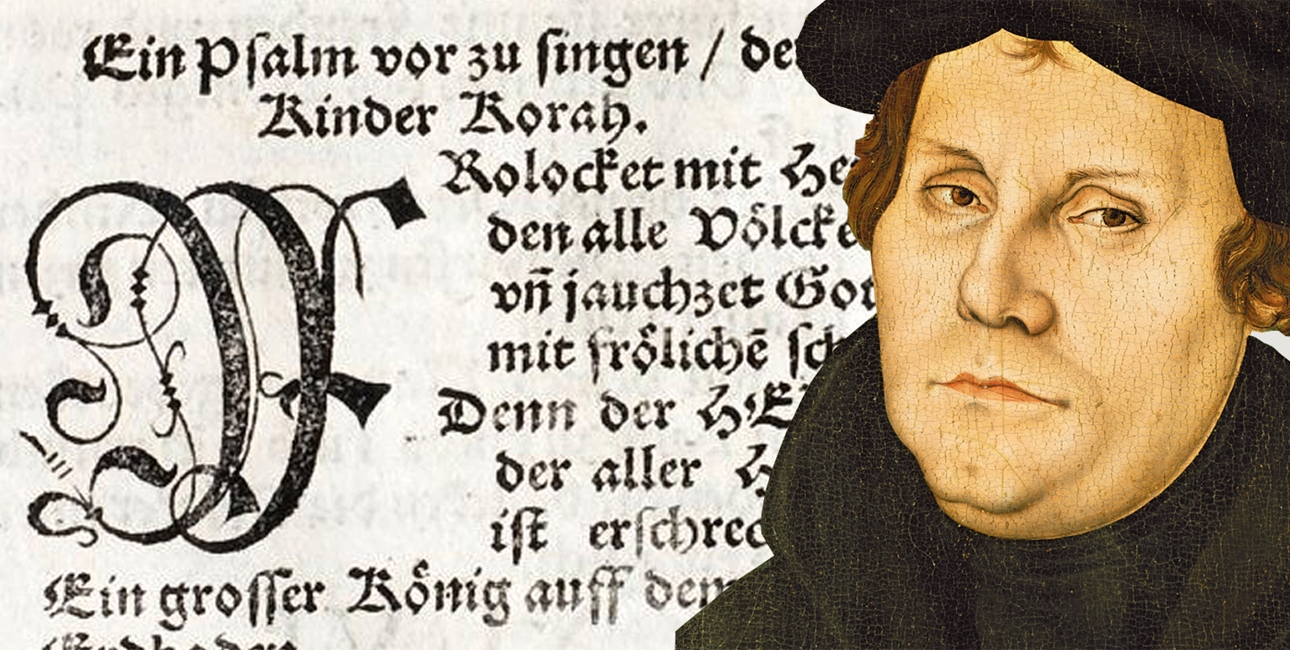 Ein Pſalm vor zu ſingen / de
Kinder Korah.
FRolocket mit He
den alle Voͤlcke
vñ jauchzet Got
mit froͤlichē ſch
Denn der HE
der aller H
iſt erſchrec
Ein groſſer Koͤnig auff dem